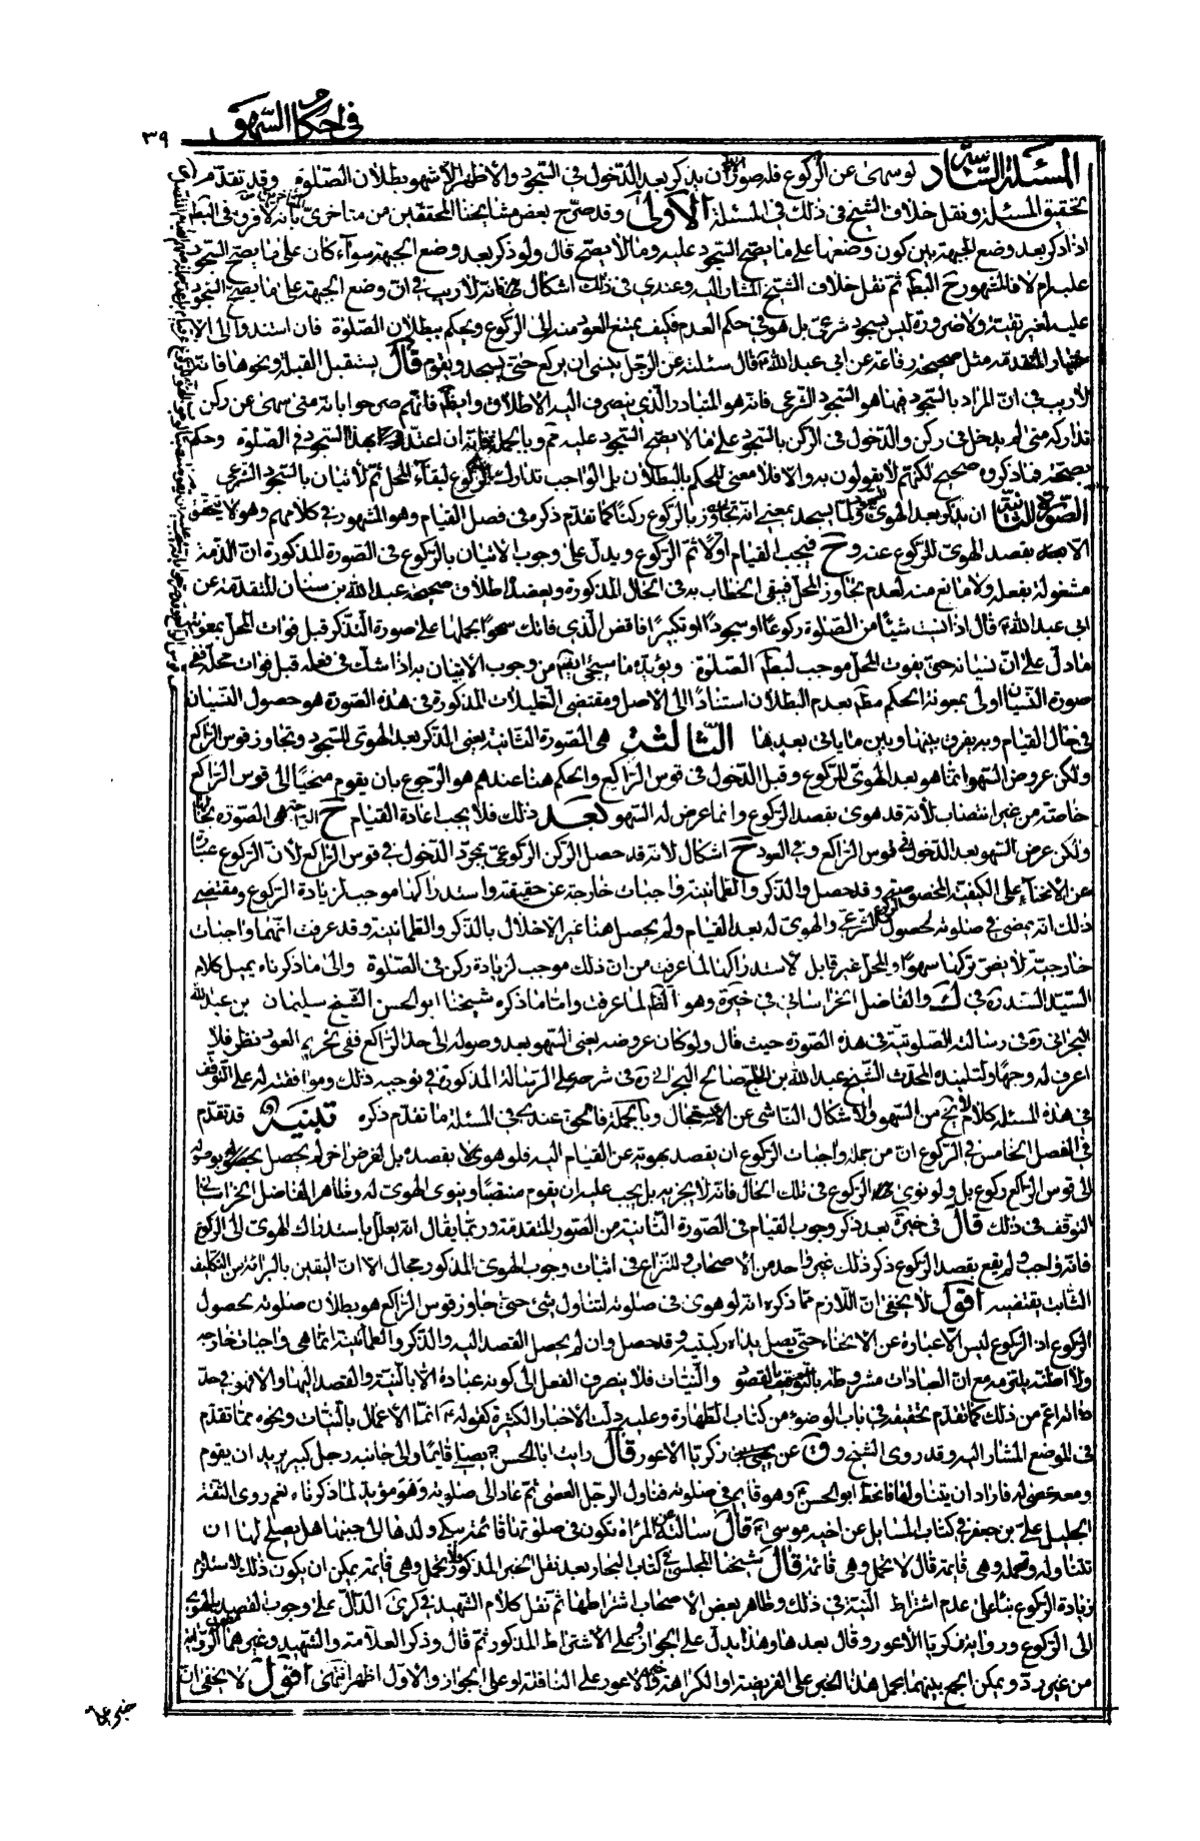 في احكام السهو
٣٩
المسئلة السادسة لو سهى عن الركوع فله صور الاولى ان يذكر بعد الدخول في السجود والاظهر الاشهر بطلان الصلوة وقد تقدم
تحقيق المسئلة ونقل خلاف الشيخ في ذلك في المسئلة الاولى وقد صرح بعض مشايخنا المحققين من متاخري بانه لا فرق في البطلان
اذا ذكر بعد وضع الجبهة بين كون وضعها على ما يصح السجود عليه وما لا يصح قال ولو ذكر بعد وضع الجبهة سوآء كان على ما يصح السجود
عليه ام لا فالمشهور ح البطلان ثم نقل خلاف الشيخ المشار اليه وعندي في ذلك اشكال فانه لا ريب في ان وضع الجبهة على ما يصح السجود
عليه لغير تقية ولا ضرورة ليس بسجود شرعي بل هو في حكم العدم فكيف يمتنع العود منه الى الركوع ويحكم ببطلان الصلوة فان استندوا الى الا
خبار المتقدمة مثل صحيحة رفاعة عن ابي عبد الله ع قال سئلته عن الرجل ينسى ان يركع حتى يسجد ويقوم قال يستقبل القبلة ونحوها فانه
لا ريب في ان المراد بالسجود فيها هو السجود الشرعي فانه هو المتبادر الذي ينصرف اليه الاطلاق وايضا فانهم صرحوا بانه متى سهى عن ركن
تداركه متى لم يدخل في ركن والدخول في الركن بالسجود على ما لا يصح السجود عليه ثم وبالجملة فانه ان اعتد بهذا السجود في الصلوة وحكم
بصحته فما ذكروه صحيح لكنهم لا يقولون به والا فلا معنى للحكم بالبطلان بل الواجب تدارك الركوع لبقآء المحل ثم الاتيان بالسجود الشرعي
الصورة الثانية ان يذكر بعد الهوي للسجود ولما يسجد بمعنى انه تجاوز بالركوع ركنا كما تقدم ذكره في فصل القيام وهو المشهور في كلامهم وهو لا يتحقق
الا بعد بقصد الهوي للركوع عنده وح فيجب القيام اولا ثم الركوع ويدل على وجوب الاتيان بالركوع في الصورة المذكورة ان الذمة
مشغولة بفعله ولا مانع منه لعدم تجاوز المحل فيبقى الخطاب به في الحال المذكورة ويعضده اطلاق صحيحة عبد الله بن سنان المتقدمة عن
ابي عبد الله ع قال اذا نسيت شيئا من الصلوة ركوعا او سجودا او تكبيرا فاقض الذي فاتك سهوا بحملها على صورة التذكر قبل فوات المحل بمعونة
ما دل على ان نسيانه حتى يفوت المحل موجب لبطلان الصلوة ويؤيده ما سيجئ ايضا من وجوب الاتيان به اذا شك في فعله قبل فوات محله ففي
صورة النسيان اولى بمعونة الحكم بعدم البطلان استنادا الى الاصل ومقتضى التعليلات المذكورة في هذه الصورة هو حصول النسيان
في حال القيام وبه يفرق بينها وبين ما ياتي بعدها الثالثة هي الصورة الثانية يعني الذكر بعد الهوي للسجود وتجاوز قوس الراكع
ولكن عروض السهو انما هو بعد الهوي للركوع وقبل الدخول في قوس الراكع والحكم هنا عندهم هو الرجوع بان يقوم منحنيا الى قوس الراكع
خاصة من غير انتصاب لانه قد هوى بقصد الركوع وانما عرض له السهو بعد ذلك فلا يجب اعادة القيام ح الرابعة هي الصورة بحالها
ولكن عرض السهو بعد الدخول في قوس الراكع وفي العود ح اشكال لانه قد حصل الركن الركوعي بمجرد الدخول في قوس الراكع لان الركوع عبارة
عن الانحنآء على الكيفية المخصوصة وقد حصل والذكر والطمانينة واجبات خارجة عن حقيقته واستدراكها موجب لزيادة الركوع ومقتضى
ذلك انه يمضي في صلوته لحصول الركوع الشرعي والهوي له بعد القيام ولم يحصل هنا غير الاخلال بالذكر والطمانينة وقد عرفت انهما واجبات
خارجية لا يضر تركها سهوا والمحل غير قابل لاستدراكها لما عرفت من ان ذلك موجب لزيادة ركن في الصلوة والى ما ذكرناه يميل كلام
السيد السند ره في ك والفاضل الخراساني في خيرة وهو الظاهر لما عرفت واما ما ذكره شيخنا ابو الحسن الشيخ سليمان بن عبد الله
البحراني ره في رسالته الصلوتية في هذه الصورة حيث قال ولو كان عروضه يعني السهو بعد وصوله الى حد الراكع ففي تحريم العود نظر فلا
اعرف له وجها ولتلميذه المحدث الشيخ عبد الله بن الحاج صالح البحراني ره في شرحه على الرسالة المذكورة في توجيه ذلك وموافقته له على التوقف
في هذه المسئلة كلام لا يخ من السهو والاشكال الناشي عن الاستعجال وبالجملة فالحق عندي في المسئلة ما تقدم ذكره تنبيه قد تقدم
في الفصل الخامس في الركوع ان من جملة واجبات الركوع ان يقصد بهويه عن القيام اليه فلو هوى لا بقصده بل لغرض اخر لم يحصل بوصوله
الى قوس الراكع ركوع بل ولو نوى الركوع في تلك الحال فانه لا يجزيه بل يجب عليه ان يقوم منتصبا وينوي الهوي له وظاهر الفاضل الخراساني
التوقف في ذلك قال في خيرة بعد ذكر وجوب القيام في الصورة الثانية من الصور المتقدمة وربما يقال انه يعلل باستدراك الهوي الى الركوع
فانه واجب ولم يقع بقصد الركوع ذكر ذلك غير واحد من الاصحاب وللنزاع في اثبات وجوب الهوي المذكور مجال الا ان اليقين بالبرائة من التكليف
الثابت يقتضيه اقول لا يخفى ان اللازم مما ذكره انه لو هوى في صلوته لتناول شئ حتى جاوز قوس الراكع هو بطلان صلوته بحصول
الركوع اذ الركوع ليس الا عبارة عن الانحناء حتى يصل يداه ركبتيه وقد حصل وان لم يحصل القصد اليه والذكر والطمانينة انما هي واجبات خارجة
ولا اظنه يلتزمه مع ان العبادات مشروطة بالقصود والنيات فلا ينصرف الفعل الى كونه عبادة الا بالنية والقصد اليها والا فهو في حد
ذاته اعم من ذلك كما تقدم تحقيقه في باب الوضوء من كتاب الطهارة وعليه دلت الاخبار الكثيرة كقوله ع انما الاعمال بالنيات ونحوه مما تقدم
في الموضع المشار اليه وقد روى الشيخ وق عن زكريا الاعور قال رايت ابا الحسن ع يصلي قائما والى جانبه رجل كبير يريد ان يقوم
ومعه عصى له فاراد ان يتناولها فانحط ابو الحسن ع وهو قايم في صلوته فناول الرجل العصى ثم عاد الى صلوته وهو مؤيد لما ذكرناه نعم روى الثقة
الجليل علي بن جعفر في كتاب المسايل عن اخيه موسى ع قال سالته عن المراة تكون في صلوتها قائمة يبكي ولدها الى جنبها هل يصلح لها ان
تتناوله وتحمله وهي قايمة قال لا تحمل وهي قائمة قال شيخنا المجلسي في كتاب البحار بعد نقل الخبر المذكور لا تحمل وهي قائمة يمكن ان يكون ذلك لاستلزام
زيادة الركوع بناء على عدم اشتراط النية في ذلك وظاهر بعض الاصحاب اشتراطها ثم نقل كلام الشهيد في كرى الدال على وجوب القصد بالهوي
الى الركوع ورواية زكريا الاعور وقال بعدها وهذا يدل على الجواز وعلى الاشتراط المذكور ثم قال وذكر العلامة والشهيد وغيرهما الرواية
من غير رد ويمكن الجمع بينهما بحمل هذا الخبر على الفريضة او الكراهة وخبر الاعور على النافلة او على الجواز والاول اظهر انتهى اقول لا يخفى ان
خبر علي